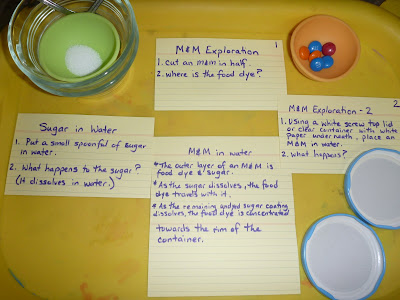 M&M Exploration 1
1. Cut an m&m in half.
2. where is the food dye?
M&M Exploration - 2 2
1. Using a white screw top lid
or clear container with white
paper underneath, place an
M&M in water.
2. what happens?
Sugar in Water
1. Put a small spoonful of sugar
in water.
2. What happens to the sugar?
(It dissolves in water.)
M&M in water
* The outer layer of an M&M is
food dye & sugar.
* As the sugar dissolves, the food
dye travels with it.
* As the remaining sugar coating
dissolves, the food dye is concentrated
towards the rim of the
container.